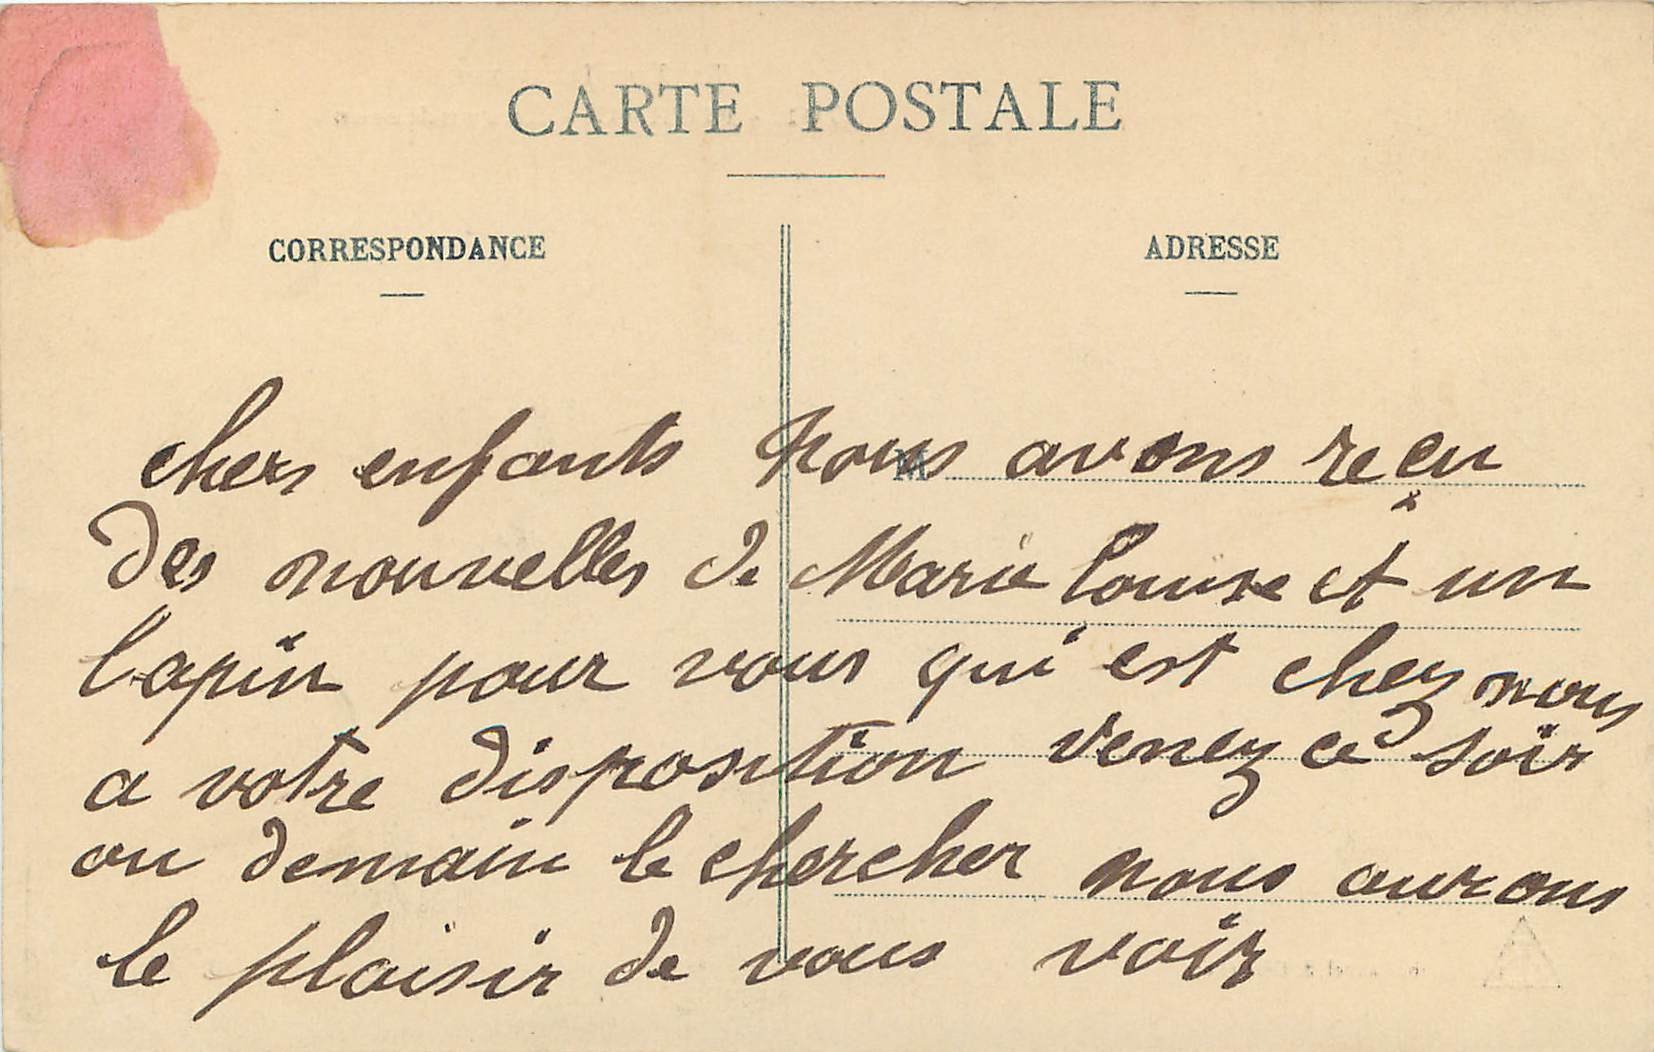 CARTE POSTALE
CORRESPONDANCE
ADRESSE
M
chers enfants nous avons reçu
des nouvelles de Marie Louise et un
lapin pour vous qui est chez nous
a votre disposition venez ce soir
ou demain le chercher nous aurons
le plaisir de vous voir